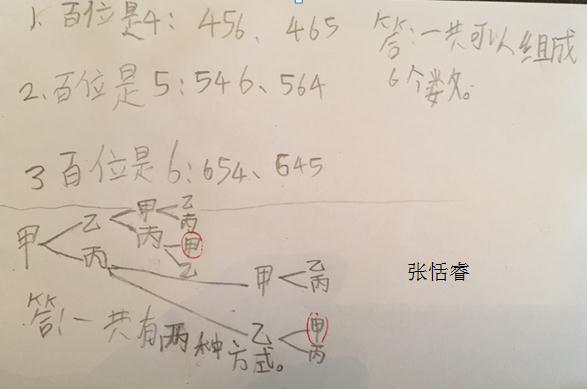 1. 百位是4: 456、465
2. 百位是5:546、564
3 百位是6:654、645
答:一共可以组成
6个数。
甲 乙 甲 乙
丙
丙 甲
乙
丙 甲 乙
丙
乙 甲
丙
答:一共有两种方式。
张恬睿